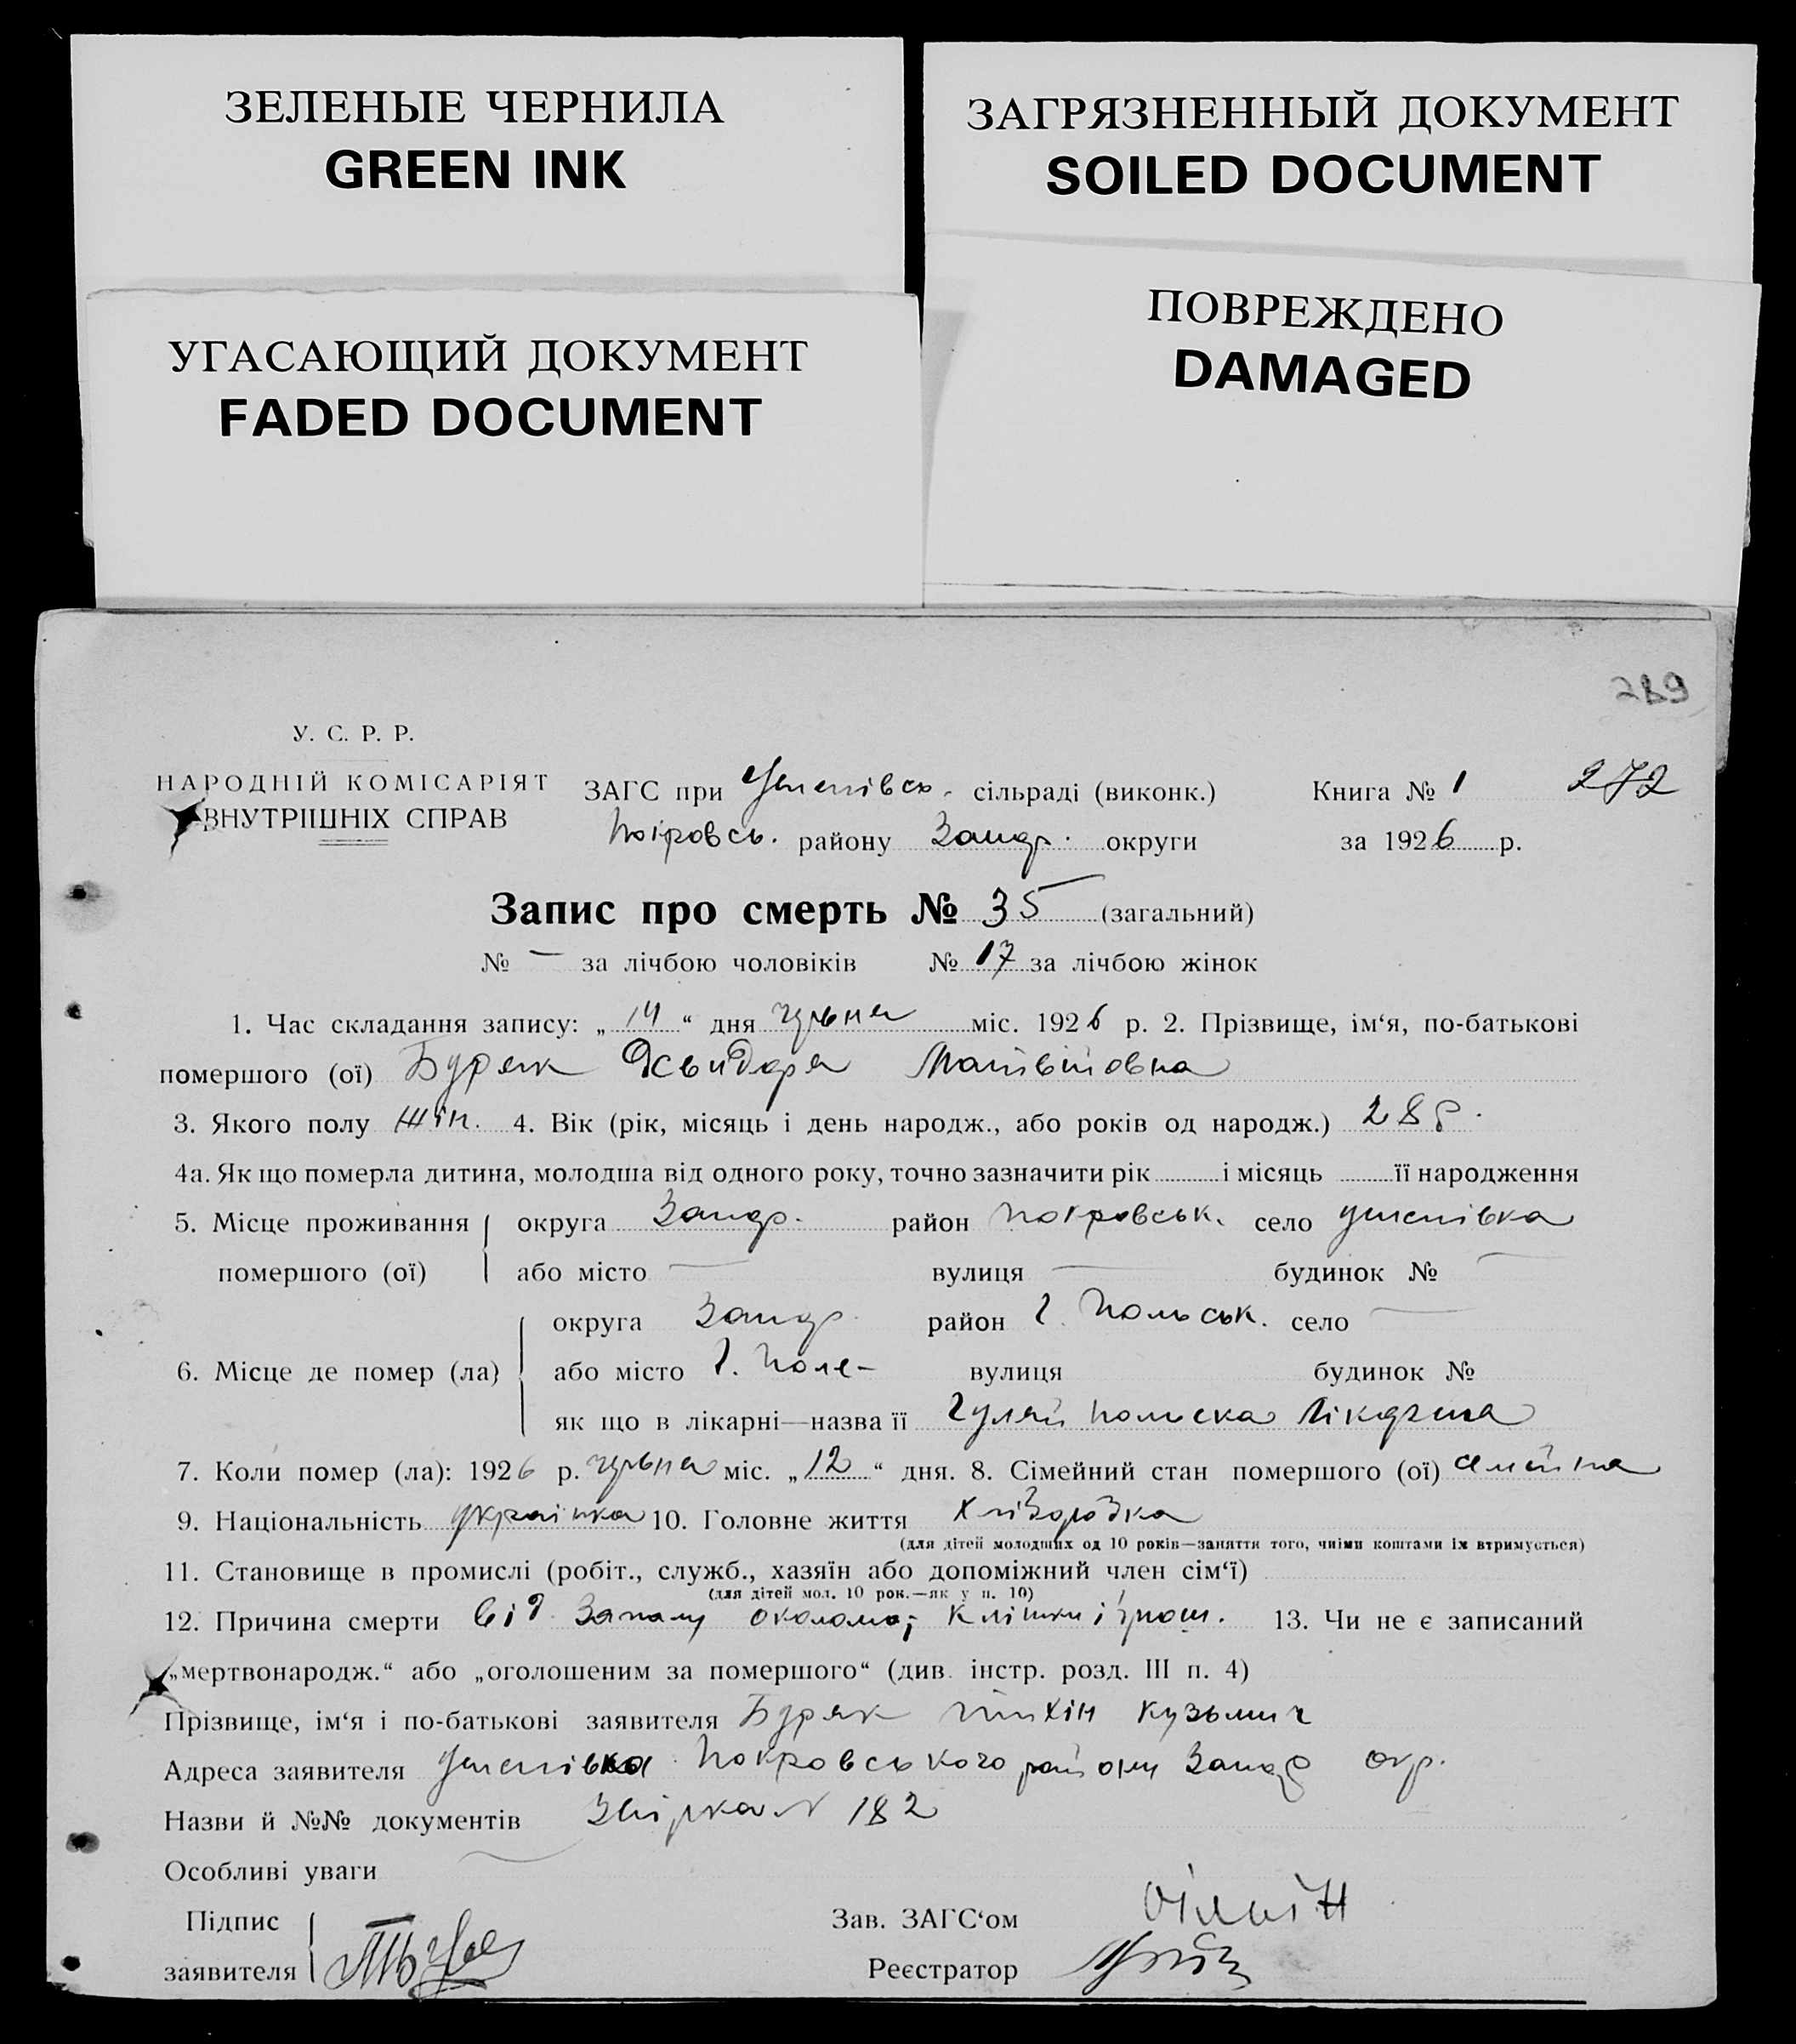 ЗЕЛЕНЫЕ ЧЕРНИЛА
GREEN INK
ЗАГРЯЗНЕННЫЙ ДОКУМЕНТ
SOILED DOCUMENT
УГАСАЮЩИЙ ДОКУМЕНТ
FADED DOCUMENT
ПОВРЕЖДЕНО
DAMAGED
289
У. С. Р. Р.
НАРОДНІЙ КОМІСАРІЯТ
ВНУТРІШНІХ СПРАВ
ЗАГС при Успенівсь. сільраді (виконк.) Книга № 1 272
Покровсь. району Запор. округи за 1926 р.
Запис про смерть № 35 (загальний)
№ — за лічбою чоловіків № 17 за лічбою жінок
1. Час складання запису: „14“ дня червня міс. 1926 р. 2. Прізвище, ім‘я, по-батькові
помершого (ої) Буряк Матвіївна
3. Якого полу жін. 4. Вік (рік, місяць і день народж., або років од народж.) 28 р.
4а. Як що померла дитина, молодша від одного року, точно зазначити рік і місяць її народження
5. Місце проживання округа Запор. район Покровськ. село Успенівка
помершого (ої) або місто — вулиця — будинок № —
округа Запор. район Г. Польськ. село —
6. Місце де помер (ла) або місто Г. Поле- вулиця будинок №
як що в лікарні—назва її Гуляй Польска Лікарня
7. Коли помер (ла): 1926 р. червня міс. „12“ дня. 8. Сімейний стан помершого (ої) семейна
9. Національність українка 10. Головне життя Хліборобка
(для дітей молодших од 10 років—заняття того, чиїми коштами їх втримується)
11. Становище в промислі (робіт., служб., хазяїн або допоміжний член сім‘ї)
(для дітей мол. 10 рок.—як у п. 10)
12. Причина смерти від Запалу 13. Чи не є записаний
„мертвонародж.“ або „оголошеним за помершого“ (див. інстр. розд. III п. 4)
Прізвище, ім‘я і по-батькові заявителя Буряк Кузьмич
Адреса заявителя Успенівка Покровського району Запор окр.
Назви й №№ документів № 182
Особливі уваги
Підпис
заявителя
Зав. ЗАГС‘ом
Реєстратор